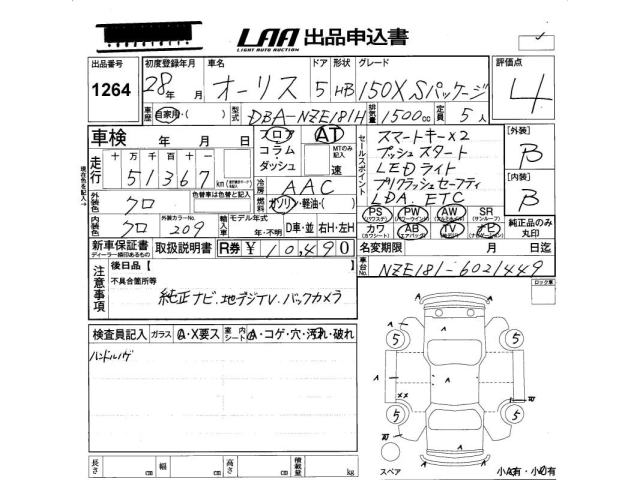 LAA 出品申込書
LIGHT AUTO AUCTION
出品番号 初度登録年月 車名 ドア 形状 グレード 評価点
1264 28年 月 オーリス 5 HB 150X Sパッケージ 4
車歴 自家用・( ) 型式 DBA-NZE181H 排気量 1500cc 定員 5人
車検 年 月 日 フロア AT セールスポイント スマートキー×2 [外装]
コラム・ MTのみ記入 プッシュスタート B
走行 十 万 千 百 十 ダッシュ 速 LEDライト
51367 km プリクラッシュセーフティ [内装]
冷房 AAC LDA. ETC B
外装色 クロ 色替車は色替と記入 燃料 ガソリン・軽油・( )
PS PW AW SR 純正品のみ
内装色 クロ 外装カラーNo. 209 輸入車 モデル年式 丸印
年・不明 D車・並 右H・左H カワ AB TV
(カワシート) (エアバッグ)
新車保証書 取扱説明書 R券 ¥10,490 名変期限 月 日迄
ディーラー捺印あるもの
注意事項 後日品【 車台No. NZE181-6021449
不具合箇所等 ロック車
純正ナビ.地デジTV.バックカメラ
検査員記入 ガラス A・X要ス 室内シート A・コゲ・穴・汚れ・破れ
ハンドルハゲ
5 5
A A A
XX
5 5
A
長さ cm 幅 cm 高さ cm 積載量 kg
スペア 小A有・小U有